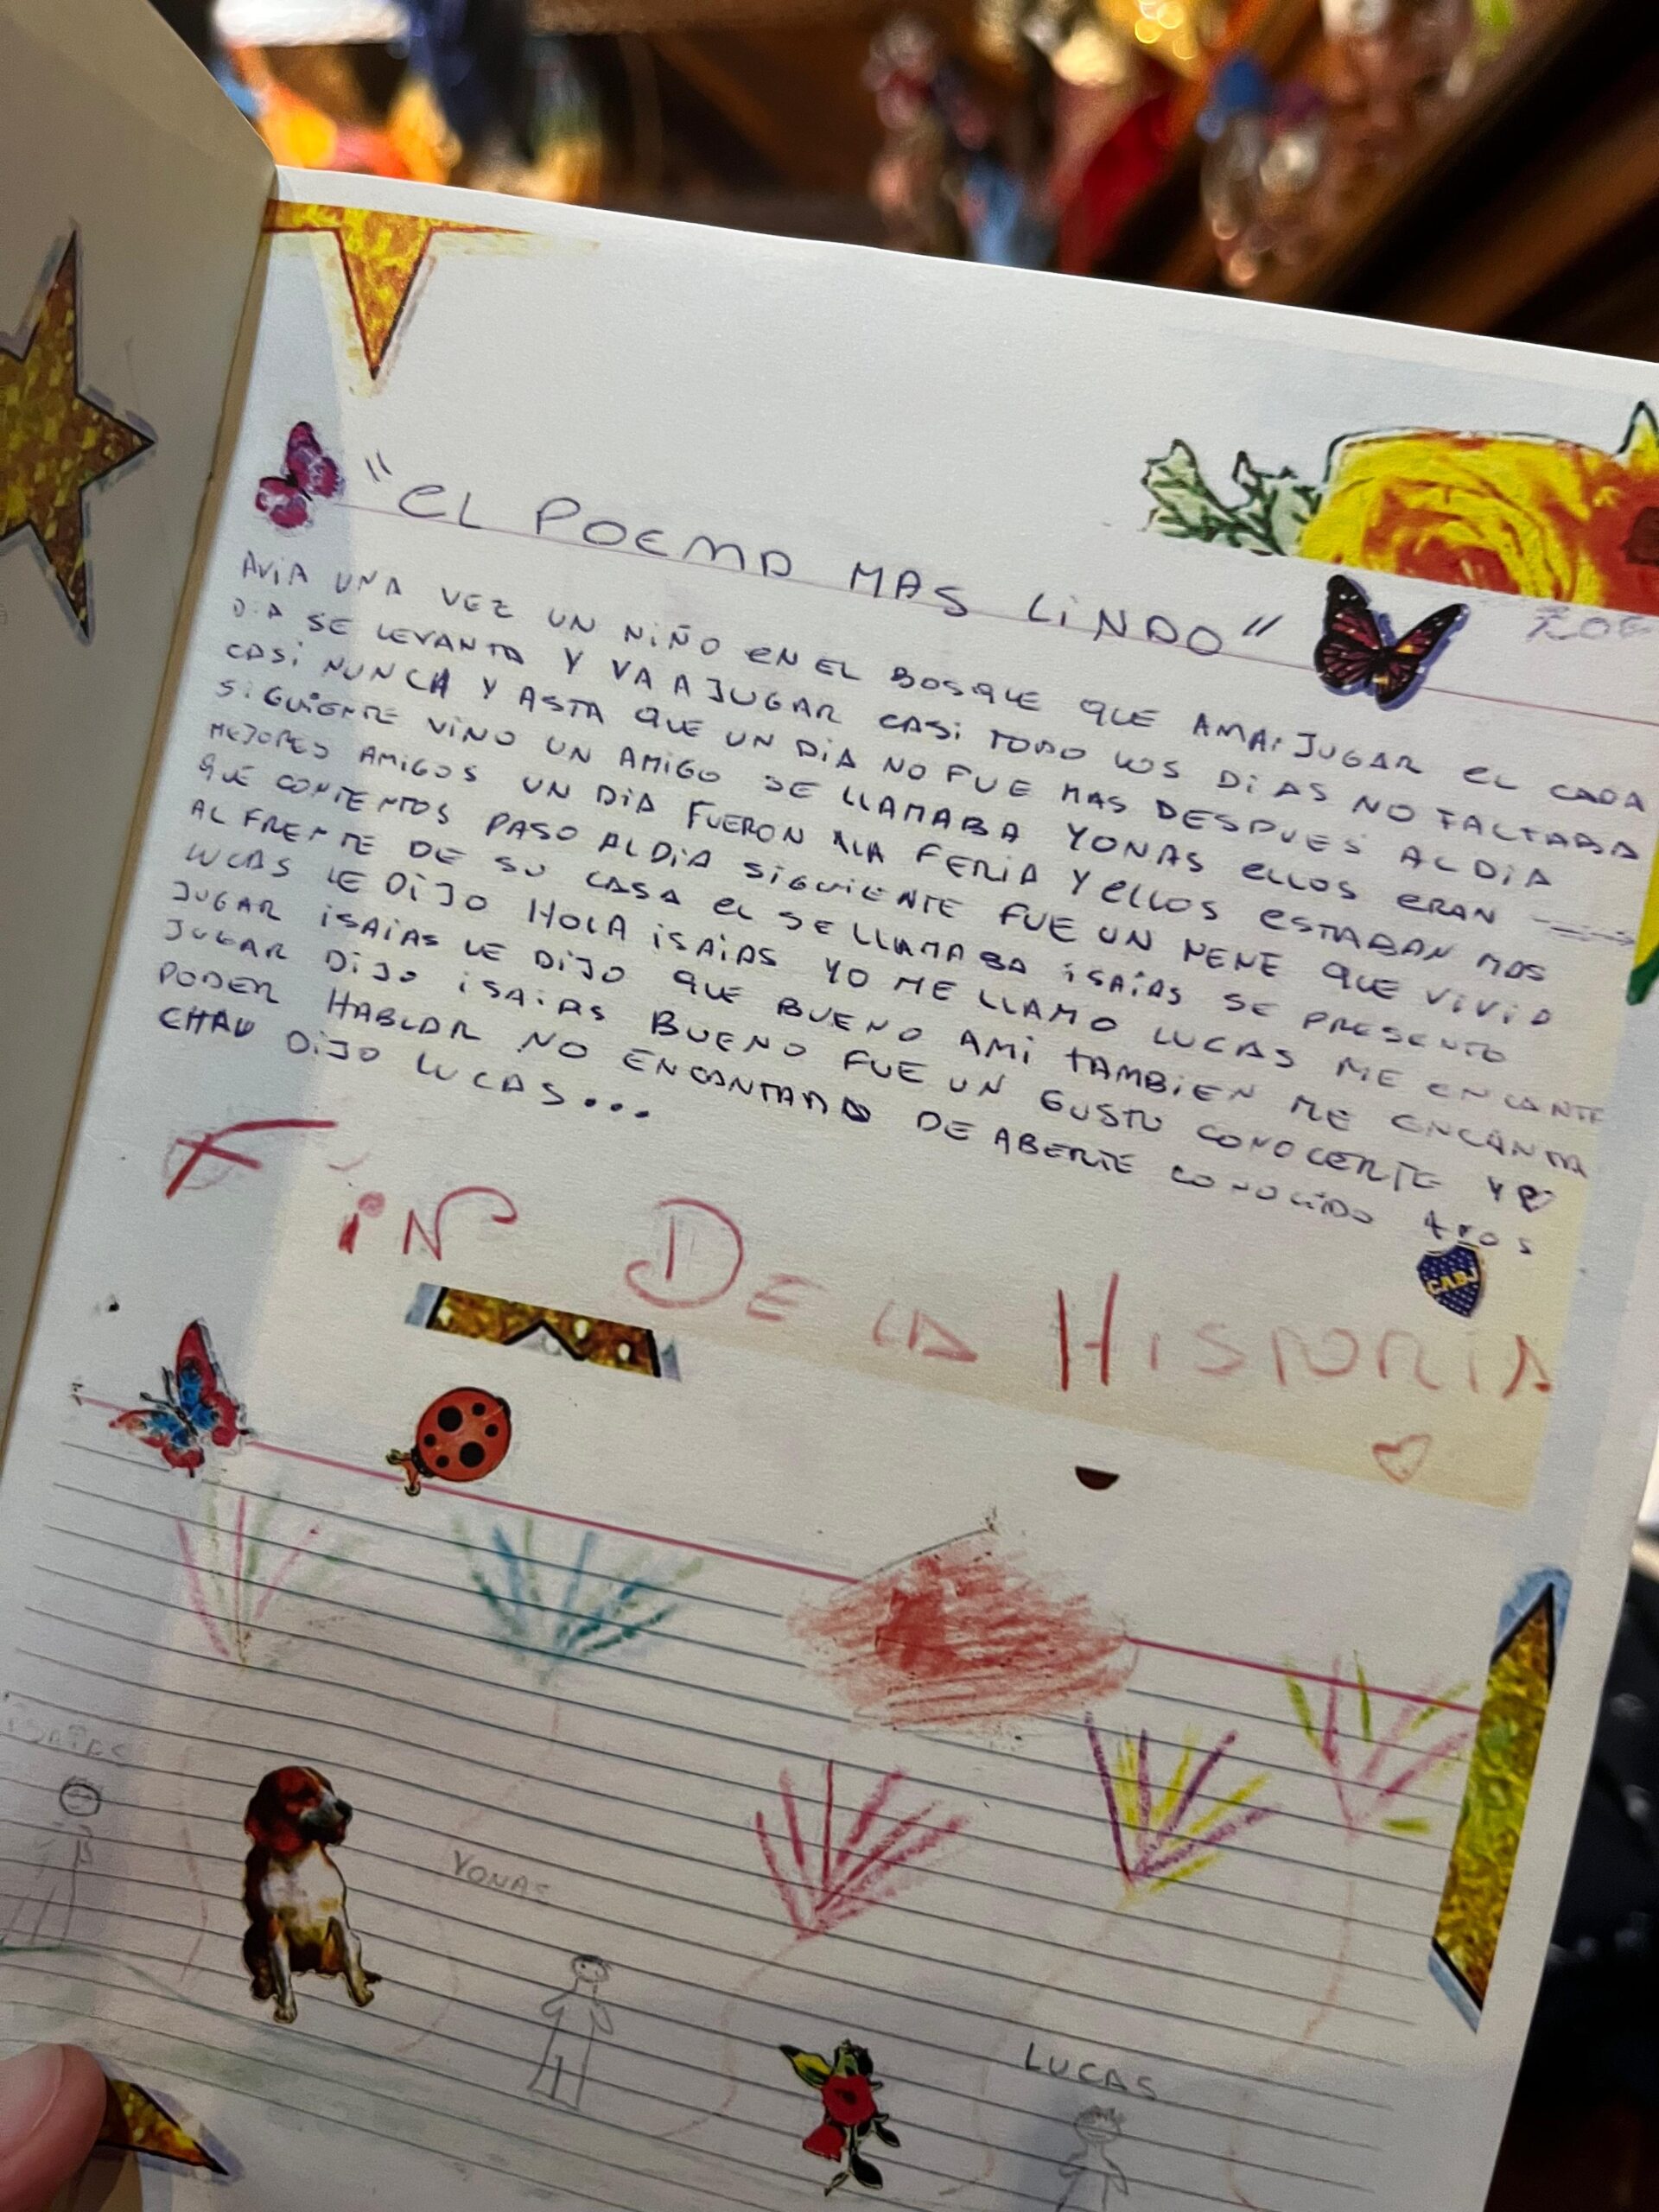 "EL POEMA MAS LINDO"
ZOE
AVIA UNA VEZ UN NIÑO EN EL BOSQUE QUE AMAI JUGAR EL CADA
DIA SE LEVANTA Y VA A JUGAR CASI TODO LOS DIAS NO FALTABA
CASI NUNCA Y ASTA QUE UN DIA NO FUE MAS DESPUES AL DIA
SIGUIENTE VINO UN AMIGO SE LLAMABA YONAS ELLOS ERAN
MEJORES AMIGOS UN DIA FUERON ALA FERIA Y ELLOS ESTABAN MAS
QUE CONTENTOS PASO AL DIA SIGUIENTE FUE UN NENE QUE VIVIA
AL FRENTE DE SU CASA EL SE LLAMABA ISAIAS SE PRESENTO
LUCAS LE DIJO HOLA ISAIAS YO ME LLAMO LUCAS ME ENCANTE
JUGAR ISAIAS LE DIJO QUE BUENO AMI TAMBIEN ME ENCANTA
JUGAR DIJO ISAIAS BUENO FUE UN GUSTO CONOCERTE Y
PODER HABLAR NO ENCANTADO DE ABERTE CONOCIDO
CHAU DIJO LUCAS...
CABJ
FIN DE LA HISTORIA
ISAIAS
YONAS
LUCAS